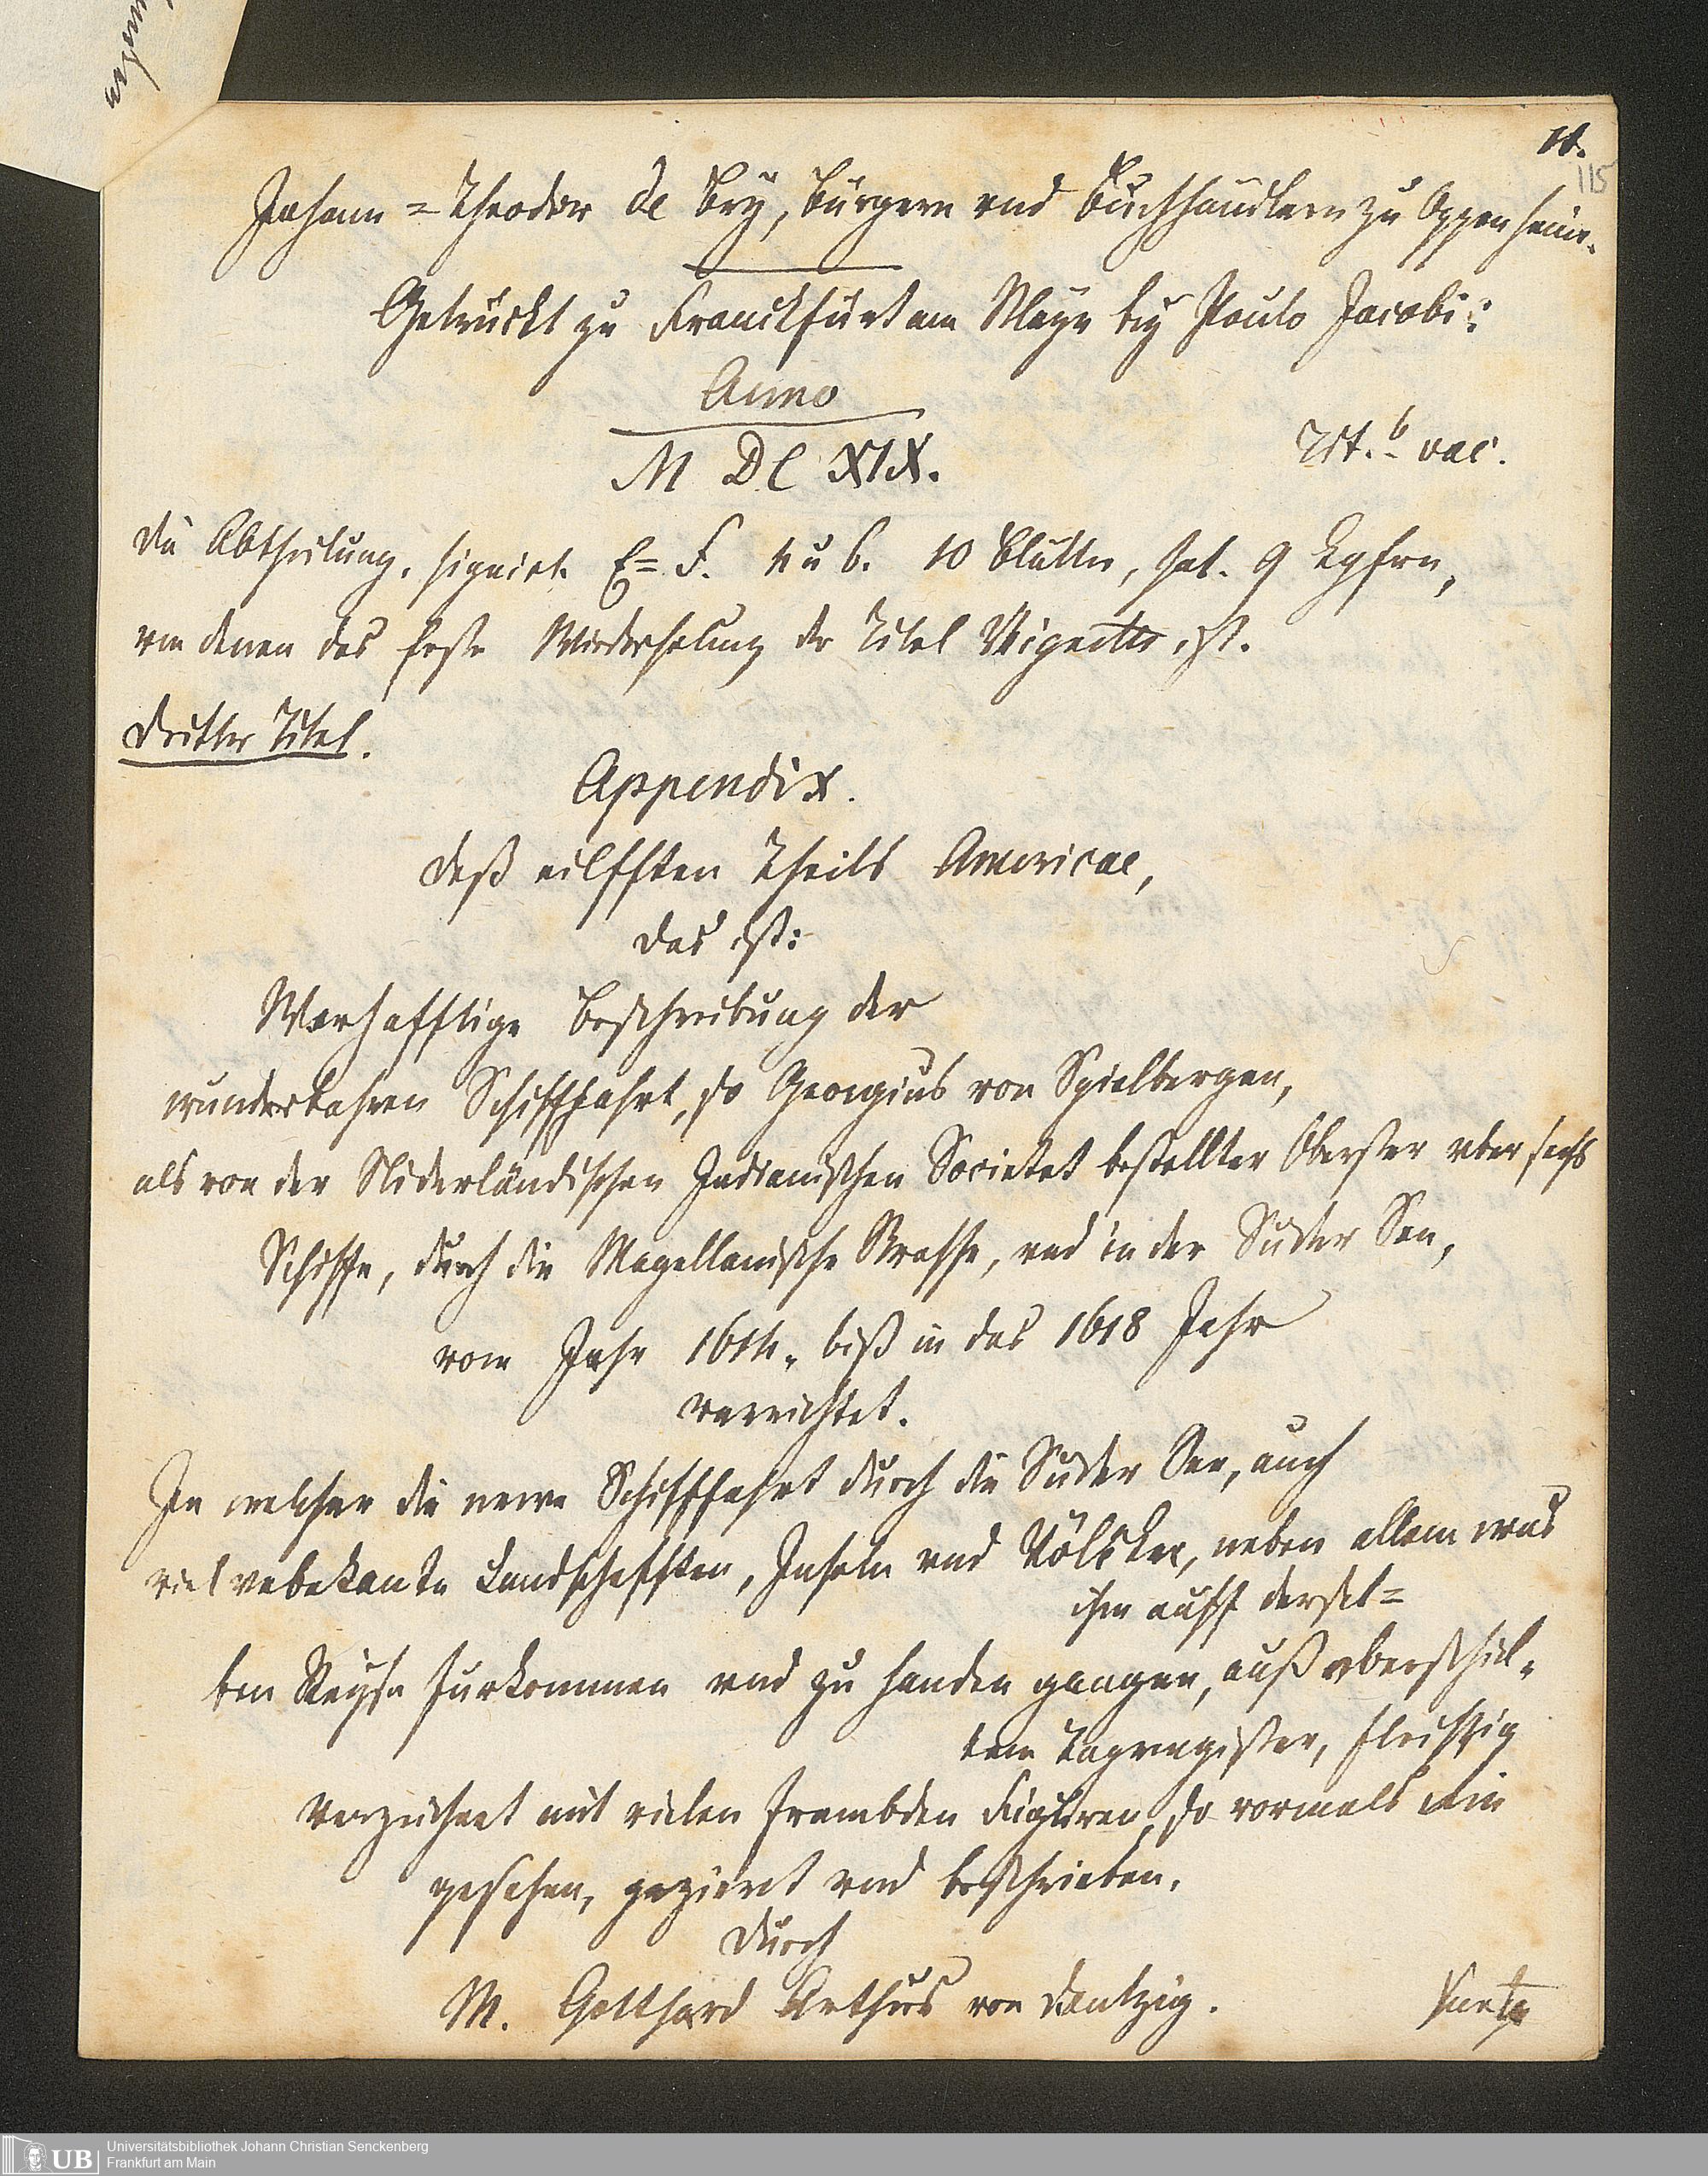 11.
115
Johann = Theodor de Bry, Bürgern vnd Buchhändlern zu Oppenheim.
Getruckt zu Franckfurt am Mayn bey Paulo Jacobi:
Anno
M DC XIX.
Tit. b vac.
Die Abtheilung, signirt E= F. 4 u 6. 10 Blätter, hat 9 Kpfrn,
von denen das erste Wiederholung der Titel Vignette ist.
Dritter Titel.
Appendix.
Deß eilfften Theils Americae,
Das ist:
Warhafftige Beschreibung der
wunderbahren Schifffahrt, so Georgius von Spielbergen,
als von der Niderländischen Indianischen Societet bestellter Oberster vber sechs
Schiffe, durch die Magellanische Strasse, vnd in der Suder See,
vom Jahr 1614. biß in das 1618 Jahr
verrichtet.
In welcher die newe Schifffahrt durch die Suder See, auch
viel vnbekante Landschafften, Inseln vnd Völcker, neben allem was
ihm auff dersel=
ben Reyse furkommen vnd zu handen gangen, auß vberschick-
tem Tagregister, fleissig
verzeichnet mit vielen frembden Figuren, so vormals nie
gesehen, geziert vnd beschrieben.
Durch
M. Gotthard Arthus von Dantzig.
Universitätsbibliothek Johann Christian Senckenberg
UB
Frankfurt am Main